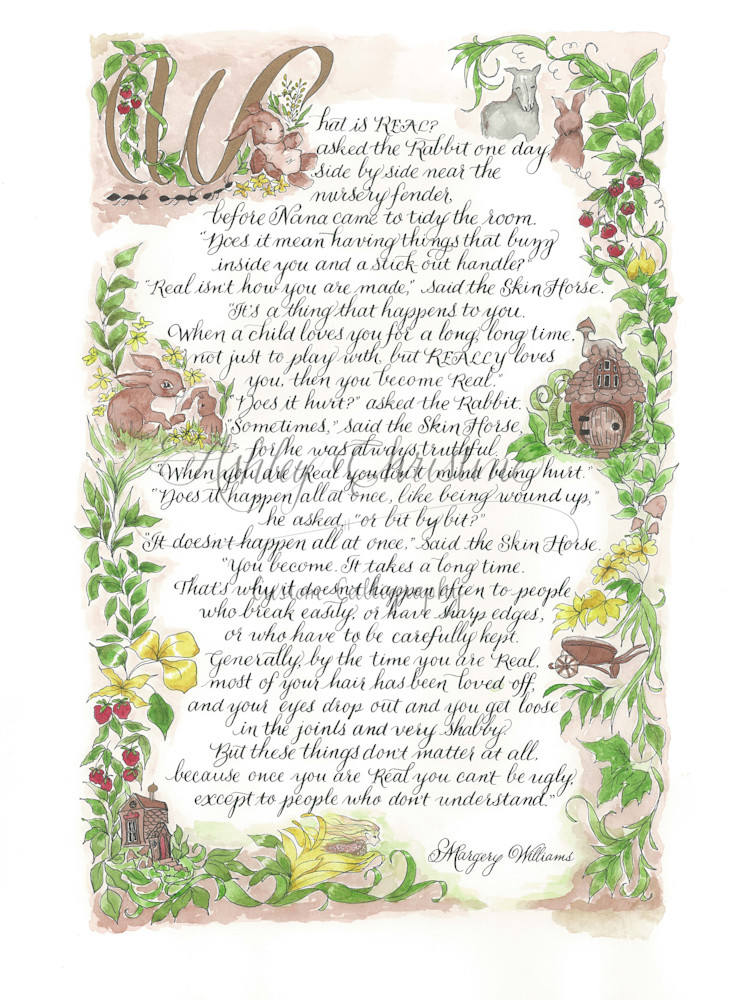 What is REAL?
asked the Rabbit one day,
side by side near the
nursery fender,
before Nana came to tidy the room.
"Does it mean having things that buzz
inside you and a stick out handle?"
"Real isn't how you are made," said the Skin Horse.
"It's a thing that happens to you.
When a child loves you for a long, long time,
not just to play with, but REALLY loves
you, then you become Real."
"Does it hurt?" asked the Rabbit.
"Sometimes," said the Skin Horse,
for he was always truthful.
"When you are Real you don't mind being hurt."
"Does it happen all at once, like being wound up,"
he asked, "or bit by bit?"
"It doesn't happen all at once," said the Skin Horse.
"You become. It takes a long time.
That's why it doesn't happen often to people
who break easily, or have sharp edges,
or who have to be carefully kept.
Generally, by the time you are Real,
most of your hair has been loved off,
and your eyes drop out and you get loose
in the joints and very shabby.
But these things don't matter at all,
because once you are Real you can't be ugly,
except to people who don't understand."
Margery Williams